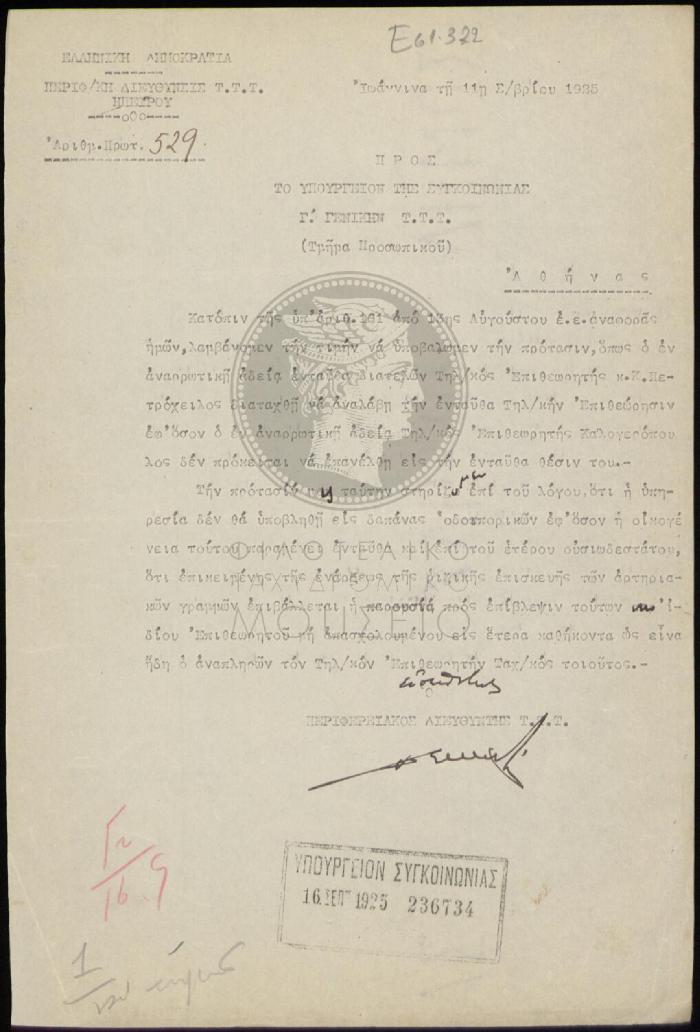 Ε61.322
ΕΛΛΗΝΙΚΗ ΔΗΜΟΚΡΑΤΙΑ
ΠΕΡΙΦ/ΚΗ ΔΙΕΥΘΥΝΣΙΣ Τ.Τ.Τ.
ΗΠΕΙΡΟΥ
Ἀριθ.Πρωτ. 529
Ἰωάννινα τῇ 11η Σ/βρίου 1925
ΠΡΟΣ
ΤΟ ΥΠΟΥΡΓΕΙΟΝ ΤΗΣ ΣΥΓΚΟΙΝΩΝΙΑΣ
Γ! ΓΕΝΙΚΗΝ Τ.Τ.Τ.
(Τμῆμα Προσωπικοῦ)
Ἀθήνας
Κατόπιν τῆς ὑπ'ἀριθ.161 ἀπό 13ης Αὐγούστου ἐ.ἔ.ἀναφορᾶς
ἡμῶν,λαμβάνομεν τήν τιμήν νά ὑποβάλωμεν τήν πρότασιν,ὅπως ὁ ἐν
ἀναρρωτικῇ ἀδείᾳ ἐνταῦθα διατελῶν Τηλ/κός Ἐπιθεωρητής κ.Κ.Πε-
τρόχειλος διαταχθῇ νά ἀναλάβῃ τήν ἐνταῦθα Τηλ/κήν Ἐπιθεώρησιν
ἐφ'ὅσον ὁ ἐν ἀναρρωτικῇ ἀδείᾳ Τηλ/κός Ἐπιθεωρητής Καλογερόπου
λος δέν πρόκειται νά ἐπανέλθῃ εἰς τήν ἐνταῦθα θέσιν του.-
Τήν πρότασίν ταύτην στηρίζομεν ἐπί τοῦ λόγου,ὅτι ἡ ὑπη-
ρεσία δέν θά ὑποβληθῇ εἰς δαπάνας ὁδοιπορικῶν ἐφ'ὅσον ἡ οἰκογέ
νεια τούτου παραμένει ἐνταῦθα καί ἐπί τοῦ ἑτέρου οὐσιωδεστάτου,
ὅτι ἐπικειμένης τῆς ἐνάρξεως τῆς ριζικῆς ἐπισκευῆς τῶν ἀρτηρια-
κῶν γραμμῶν ἐπιβάλλεται ἡ παρουσία πρός ἐπίβλεψιν τούτων ἰ-
δίου Ἐπιθεωρητοῦ μή ἀπασχολουμένου εἰς ἕτερα καθήκοντα ὡς εἶναι
ἤδη ὁ ἀναπληρῶν τόν Τηλ/κόν Ἐπιθεωρητήν Ταχ/κός τοιοῦτος.-
Ο
ΠΕΡΙΦΕΡΕΙΑΚΟΣ ΔΙΕΥΘΥΝΤΗΣ Τ.Τ.Τ.
ΦΙΛΟΤΕΛΙΚΟ
ΤΑΧΥΔΡΟΜΙΚΟ
ΜΟΥΣΕΙΟ
ΥΠΟΥΡΓΕΙΟΝ ΣΥΓΚΟΙΝΩΝΙΑΣ
16 ΣΕΠΤ 1925 236734
16.9